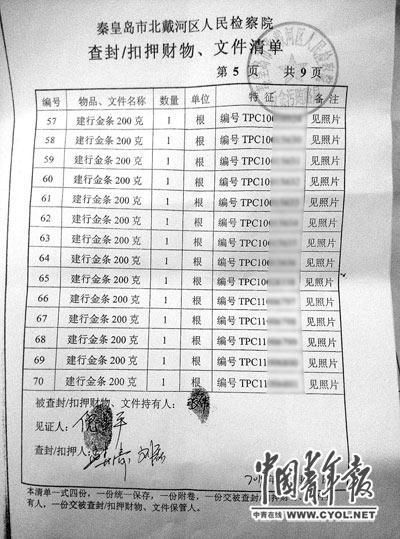 秦皇岛市北戴河区人民检察院
查封/扣押财物、文件清单
第 5 页 共 9 页
编号 物品、文件名称 数量 单位 特征 备注
57 建行金条 200 克 1 根 编号 TPC10 见照片
58 建行金条 200 克 1 根 编号 TPC10 见照片
59 建行金条 200 克 1 根 编号 TPC10 见照片
60 建行金条 200 克 1 根 编号 TPC10 见照片
61 建行金条 200 克 1 根 编号 TPC10 见照片
62 建行金条 200 克 1 根 编号 TPC10 见照片
63 建行金条 200 克 1 根 编号 TPC10 见照片
64 建行金条 200 克 1 根 编号 TPC10 见照片
65 建行金条 200 克 1 根 编号 TPC10 见照片
66 建行金条 200 克 1 根 编号 TPC11 见照片
67 建行金条 200 克 1 根 编号 TPC11 见照片
68 建行金条 200 克 1 根 编号 TPC11 见照片
69 建行金条 200 克 1 根 编号 TPC11 见照片
70 建行金条 200 克 1 根 编号 TPC11 见照片
被查封/扣押财物、文件持有人：
见证人：
查封/扣押人：
中国青年报
中青在线 WWW.CYOL.NET
本清单一式四份，一份统一保存，一份附卷，一份交被查封/扣押财
有人，一份交被扣押财物、文件保管人。